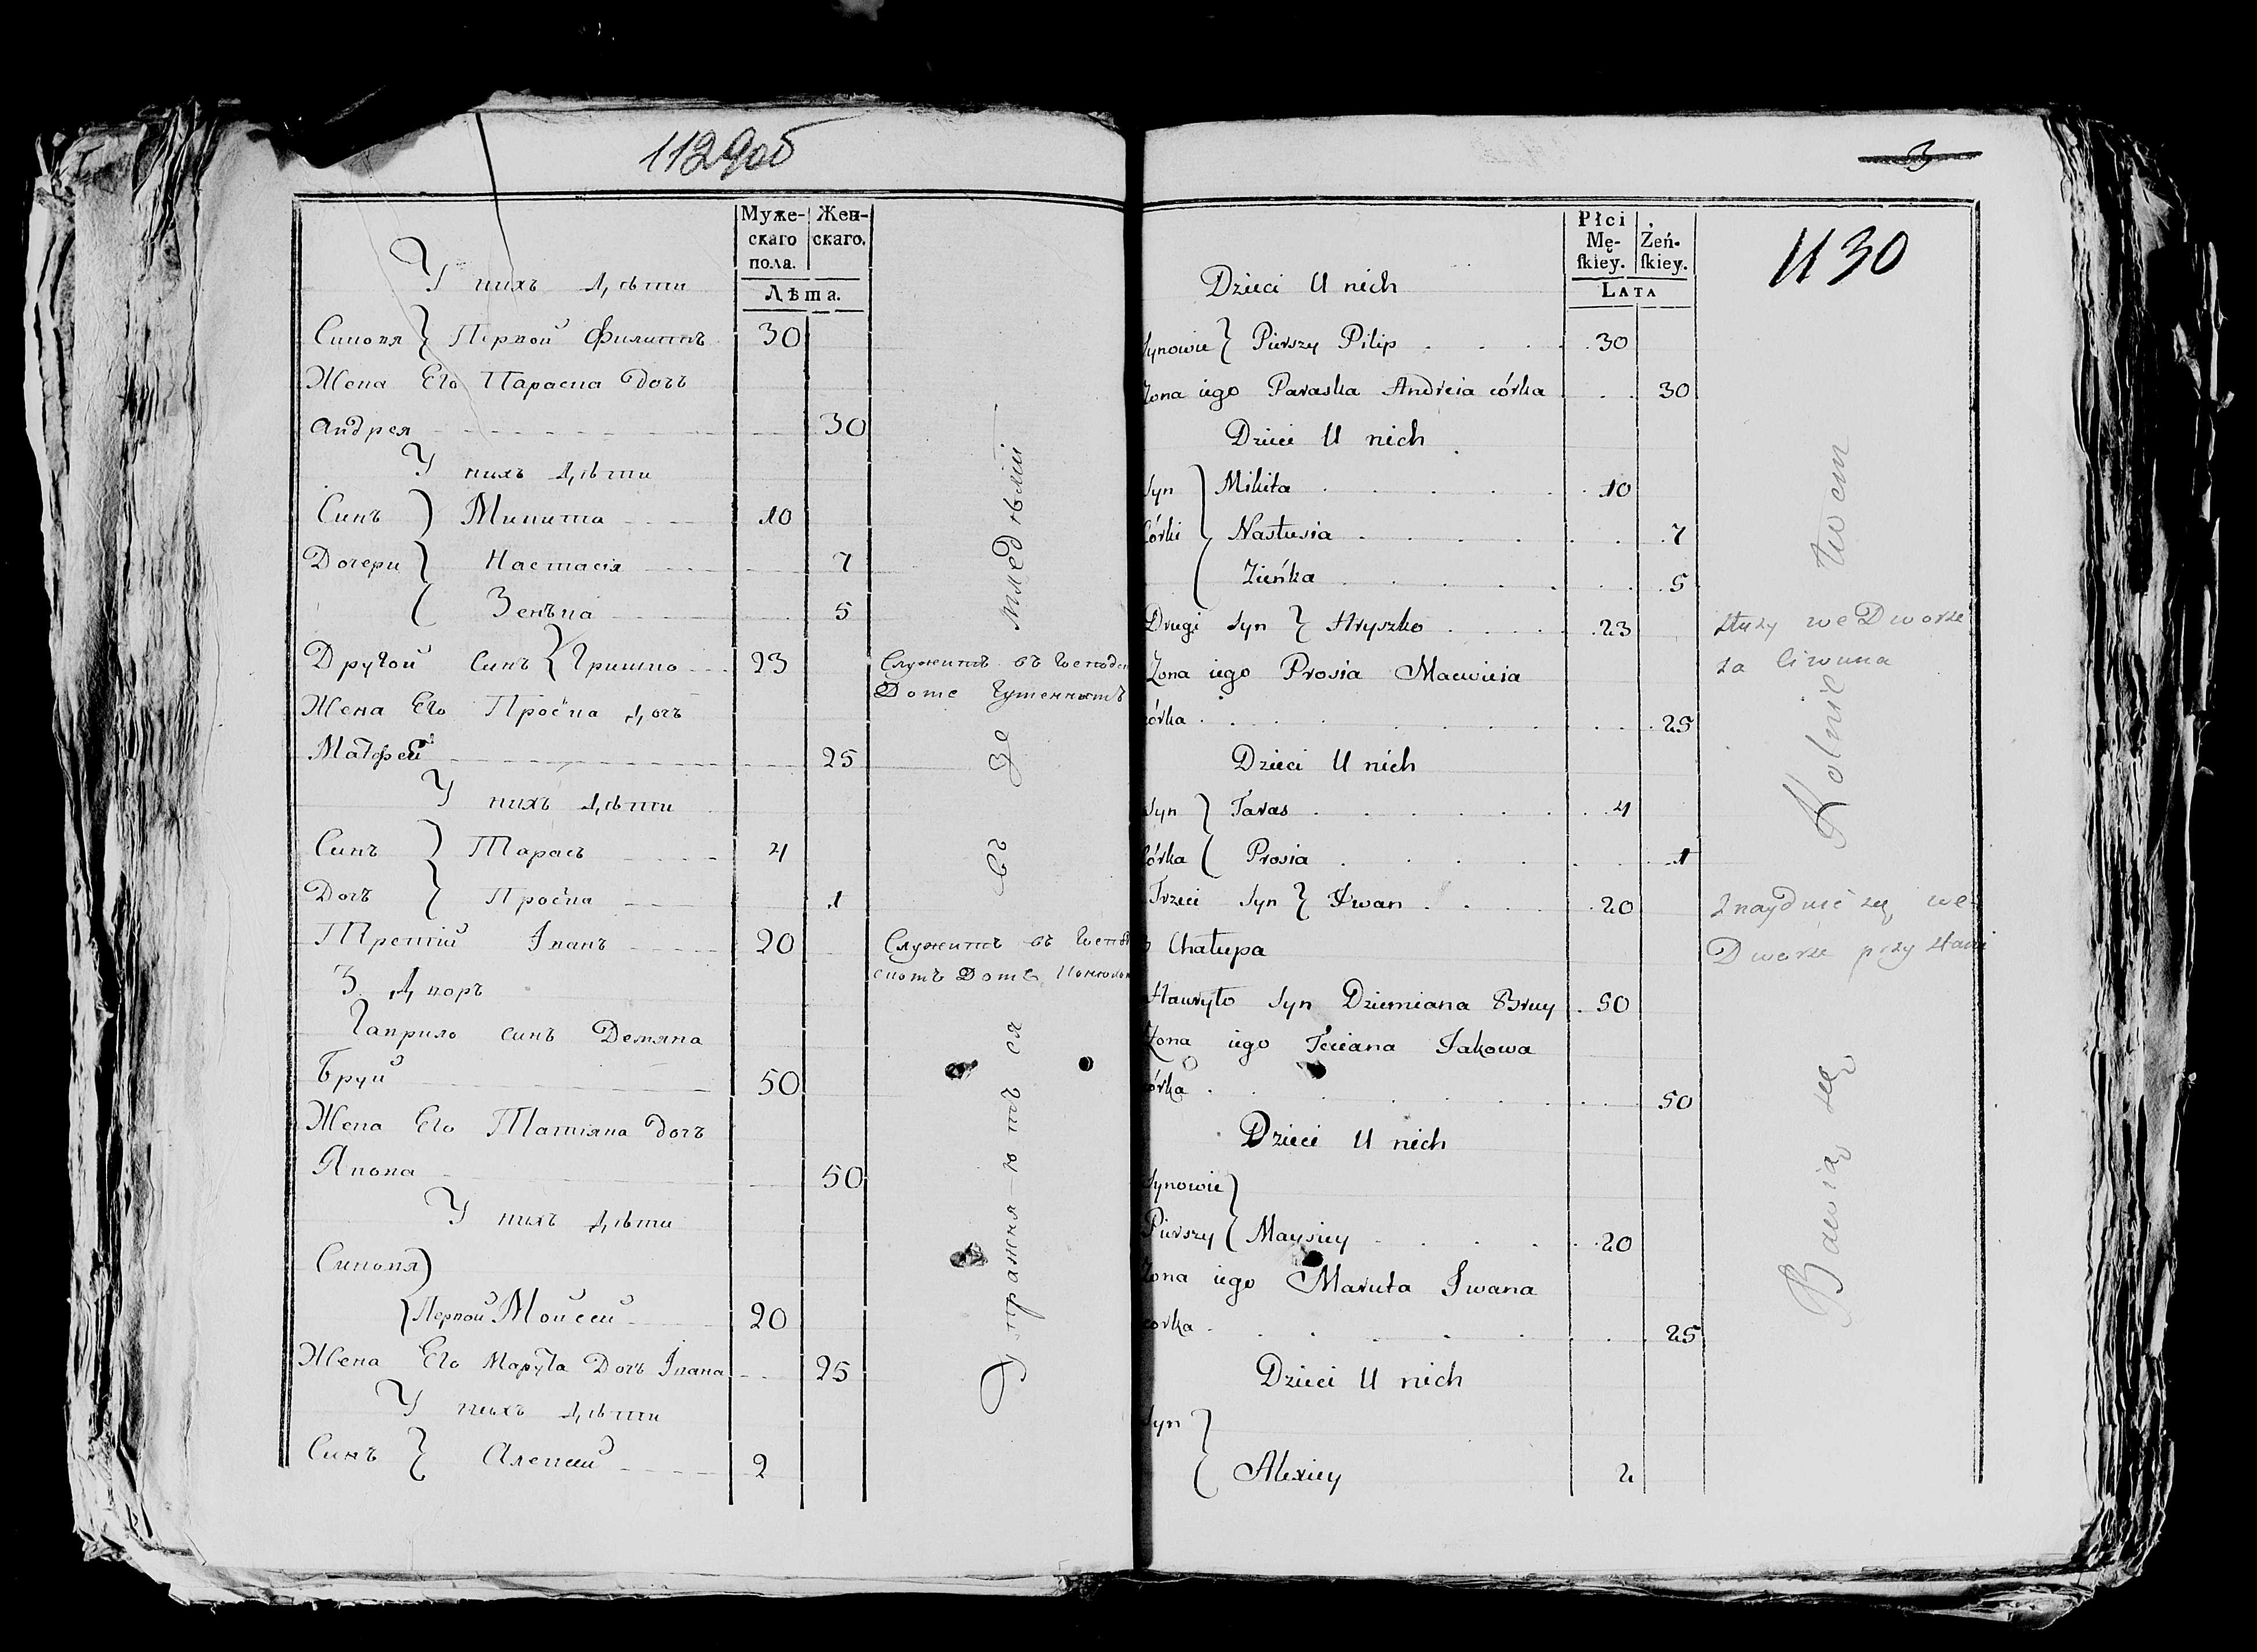 1129об
Муже-
скаго
пола.
Жен-
скаго.
Лѣта.
У нихъ Дѣти
Синовя Первой Филиппъ 30
Жена Его Параска Дочь
Андрея 30
У нихъ Дѣти
Синъ Микита 10
Дочери Настасія 7
Зенька 5
Другой Синъ Гришко 23
Жена Его Проска Дочь
Матфея 25
У нихъ Дѣти
Синъ Тарасъ 4
Дочь Проска 1
Третій Іванъ 20
3. Дворъ
Гаврило синъ Демяна
Бруй 50
Жена Его Татіяна Дочь
Якова 50
У нихъ Дѣти
Синовя
Первой Моисей 20
Жена Его Марута Дочь Івана 25
У нихъ Дѣти
Синъ Алексей 2
Служитъ въ
Доме Гуменнымъ
Служитъ въ
Доме
Упражняютъ ся въ Земледѣліи
3
1130
Płci
Mę-
skiey.
Żeń-
skiey.
Lata
Dzieci U nich
Synowie Pierszy Pilip 30
Żona iego Paraska Andreia córka 30
Dzieci U nich
Syn Mikita 10
Córki Nastusia 7
Zieńka 5
Drugi Syn Hryszko 23
Żona iego Prosia Maciuieia
córka 25
Dzieci U nich
Syn Taras 4
córka Prosia 1
Trzeci Syn Iwan 20
3 Chałupa
Hauryło Syn Dziemiana Bruy 50
Żona iego Tciciana Jakowa
córka 50
Dzieci U nich
Synowie
Pierszy Maysiey 20
Żona iego Maruta Iwana
corka 25
Dzieci U nich
Syn
Alexiey 2
służy we Dworze
za Ciwuna
Znayduie się we
Dworze przy
Bawią się Rolnictwem